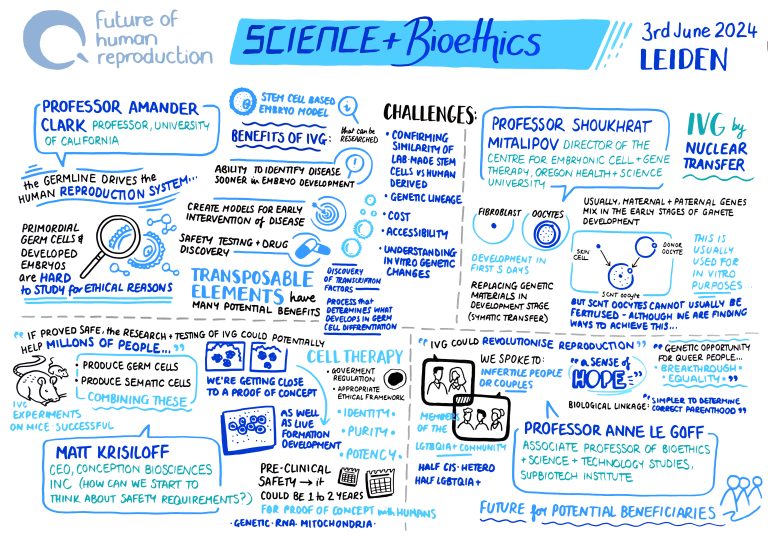 future of
human
reproduction
SCIENCE + Bioethics
3rd June 2024
LEIDEN
PROFESSOR AMANDER
CLARK PROFESSOR, UNIVERSITY
OF CALIFORNIA
the GERMLINE DRIVES the
HUMAN REPRODUCTION SYSTEM...
PRIMORDIAL
GERM CELLS &
DEVELOPED
EMBRYOS
are HARD
to STUDY for ETHICAL REASONS
STEM CELL BASED
EMBRYO MODEL
BENEFITS OF IVG:
that can be
RESEARCHED
ABILITY TO IDENTIFY DISEASE
SOONER in EMBRYO DEVELOPMENT
CREATE MODELS FOR EARLY
INTERVENTION of DISEASE
SAFETY TESTING + DRUG
DISCOVERY
TRANSPOSABLE
ELEMENTS have
MANY POTENTIAL BENEFITS
DISCOVERY
OF TRANSCRIPTION
FACTORS
PROCESS that
DETERMINES WHAT
DEVELOPS IN GERM
CELL DIFFRENTIATION
CHALLENGES:
• CONFIRMING
SIMILARITY OF
LAB-MADE STEM
CELLS VS HUMAN
DERIVED
• GENETIC LINEAGE
• COST
• ACCESSIBILITY
• UNDERSTANDING
IN VITRO GENETIC
CHANGES
PROFESSOR SHOUKHRAT
MITALIPOV DIRECTOR OF THE
CENTRE FOR EMBRYONIC CELL + GENE
THERAPY, OREGON HEALTH + SCIENCE
UNIVERSITY
IVG by
NUCLEAR
TRANSFER
FIBROBLAST OOCYTES
DEVELOPMENT IN
FIRST 5 DAYS
REPLACING GENETIC
MATERIALS IN
DEVELOPMENT STAGE
(SYMATIC TRANSFER)
USUALLY, MATERNAL + PATERNAL GENES
MIX IN THE EARLY STAGES OF GAMETE
DEVELOPMENT
SKIN
CELL
DONOR
OOCYTE
SCNT OOCYTE
THIS IS
USUALLY
USED FOR
IN VITRO
PURPOSES
BUT SCNT OOCYTES CANNOT USUALLY BE
FERTILISED - ALTHOUGH WE ARE FINDING
WAYS TO ACHIEVE THIS...
"IF PROVED SAFE, the RESEARCH + TESTING OF IVG COULD POTENTIALLY
HELP MILLIONS OF PEOPLE..."
• PRODUCE GERM CELLS
• PRODUCE SEMATIC CELLS
COMBINING THESE
IVG
EXPERIMENTS
ON MICE SUCCESSFUL
MATT KRISILOFF
CEO, CONCEPTION BIOSCIENCES
INC (HOW CAN WE START TO
THINK ABOUT SAFETY REQUIREMENTS?)
WE'RE GETTING CLOSE
TO A PROOF OF CONCEPT
AS WELL
AS LIVE
FORMATION
DEVELOPMENT
CELL THERAPY
• GOVERMENT
REGULATION
• APPROPRIATE
ETHICAL FRAMEWORK
• IDENTITY •
• PURITY •
• POTENCY •
PRE-CLINICAL
SAFETY → it
COULD BE 1 to 2 YEARS
FOR PROOF OF CONCEPT with HUMANS
• GENETIC • RNA • MITOCHONDRIA •
"IVG COULD REVOLUTIONISE REPRODUCTION"
WE SPOKE TO:
INFERTILE PEOPLE
OR COUPLES
MEMBERS
OF THE
LGBTQIA+ COMMUNITY
HALF CIS-HETERO
HALF LGBTQIA+
"a SENSE of
HOPE"
"GENETIC OPPORTUNITY
FOR QUEER PEOPLE...
• BREAKTHROUGH •
• EQUALITY • "
BIOLOGICAL LINKAGE: "SIMPLER TO DETERMINE
CORRECT PARENTHOOD"
PROFESSOR ANNE LE GOFF
ASSOCIATE PROFESSOR OF BIOETHICS
+ SCIENCE + TECHNOLOGY STUDIES,
SUPBIOTECH INSTITUTE
FUTURE for POTENTIAL BENEFICIARIES